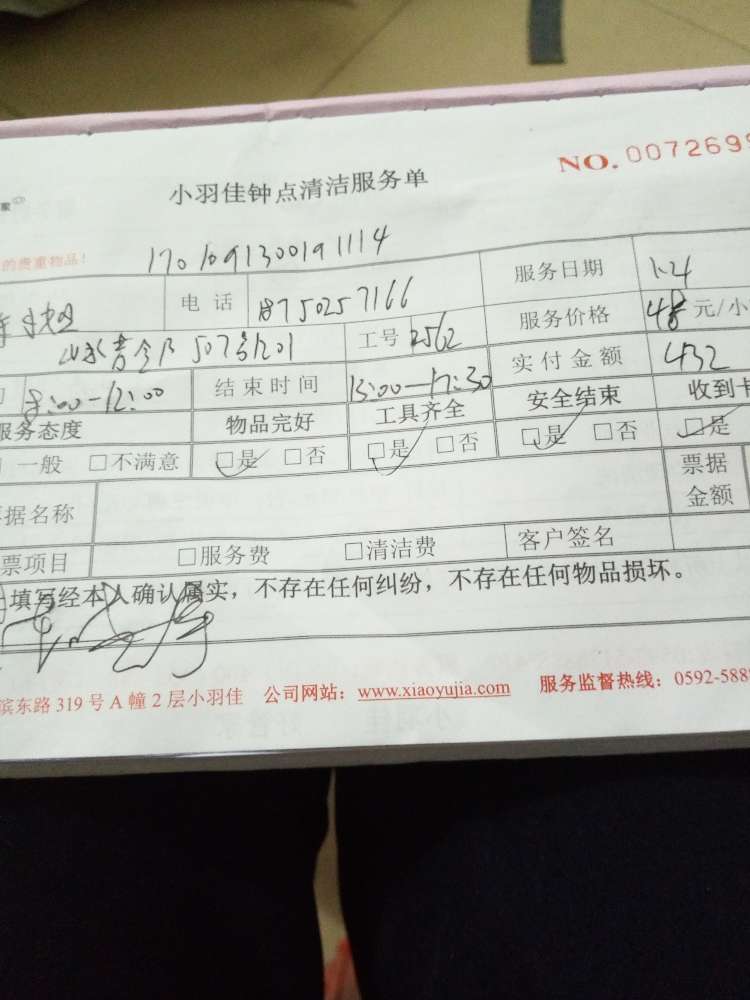 NO. 0072699
家
小羽佳钟点清洁服务单
的贵重物品!
170109130019 1114
电话 18750257166 服务日期 1.24
507号1201 工号 2562 服务价格 48 元/小
8:00—12:00 结束时间 13:00—17:30 实付金额 432
服务态度 物品完好 工具齐全 安全结束 收到卡
一般 □不满意 □是 □否 □是 □否 □是 □否 □是
据名称 票据金额
票项目 □服务费 □清洁费 客户签名
填写经本人确认属实，不存在任何纠纷，不存在任何物品损坏。
滨东路 319 号 A 幢 2 层小羽佳 公司网站：www.xiaoyujia.com 服务监督热线：0592-588